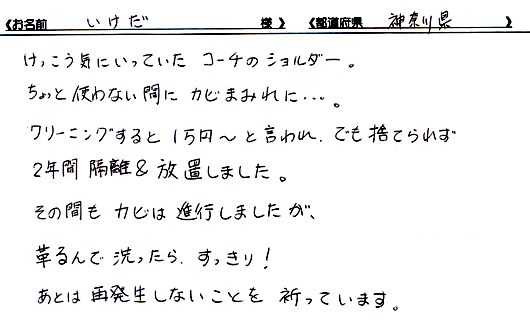 《お名前 いけだ 様》 《都道府県 神奈川県 》
けっこう気にいっていた コーチのショルダー。
ちょっと使わない間に カビまみれに…。
クリーニングすると 1万円〜と言われ、でも捨てられず
2年間 隔離& 放置しました。
その間も カビは 進行しましたが、
革るんで 洗ったら、すっきり!
あとは 再発生しないことを 祈っています。